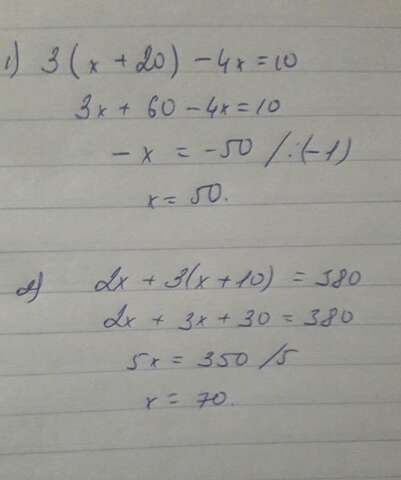 1) 3(x + 20) - 4x = 10
3x + 60 - 4x = 10
- x = -50 /:(-1)
x = 50.
2) 2x + 3(x + 10) = 380
2x + 3x + 30 = 380
5x = 350 /5
x = 70.